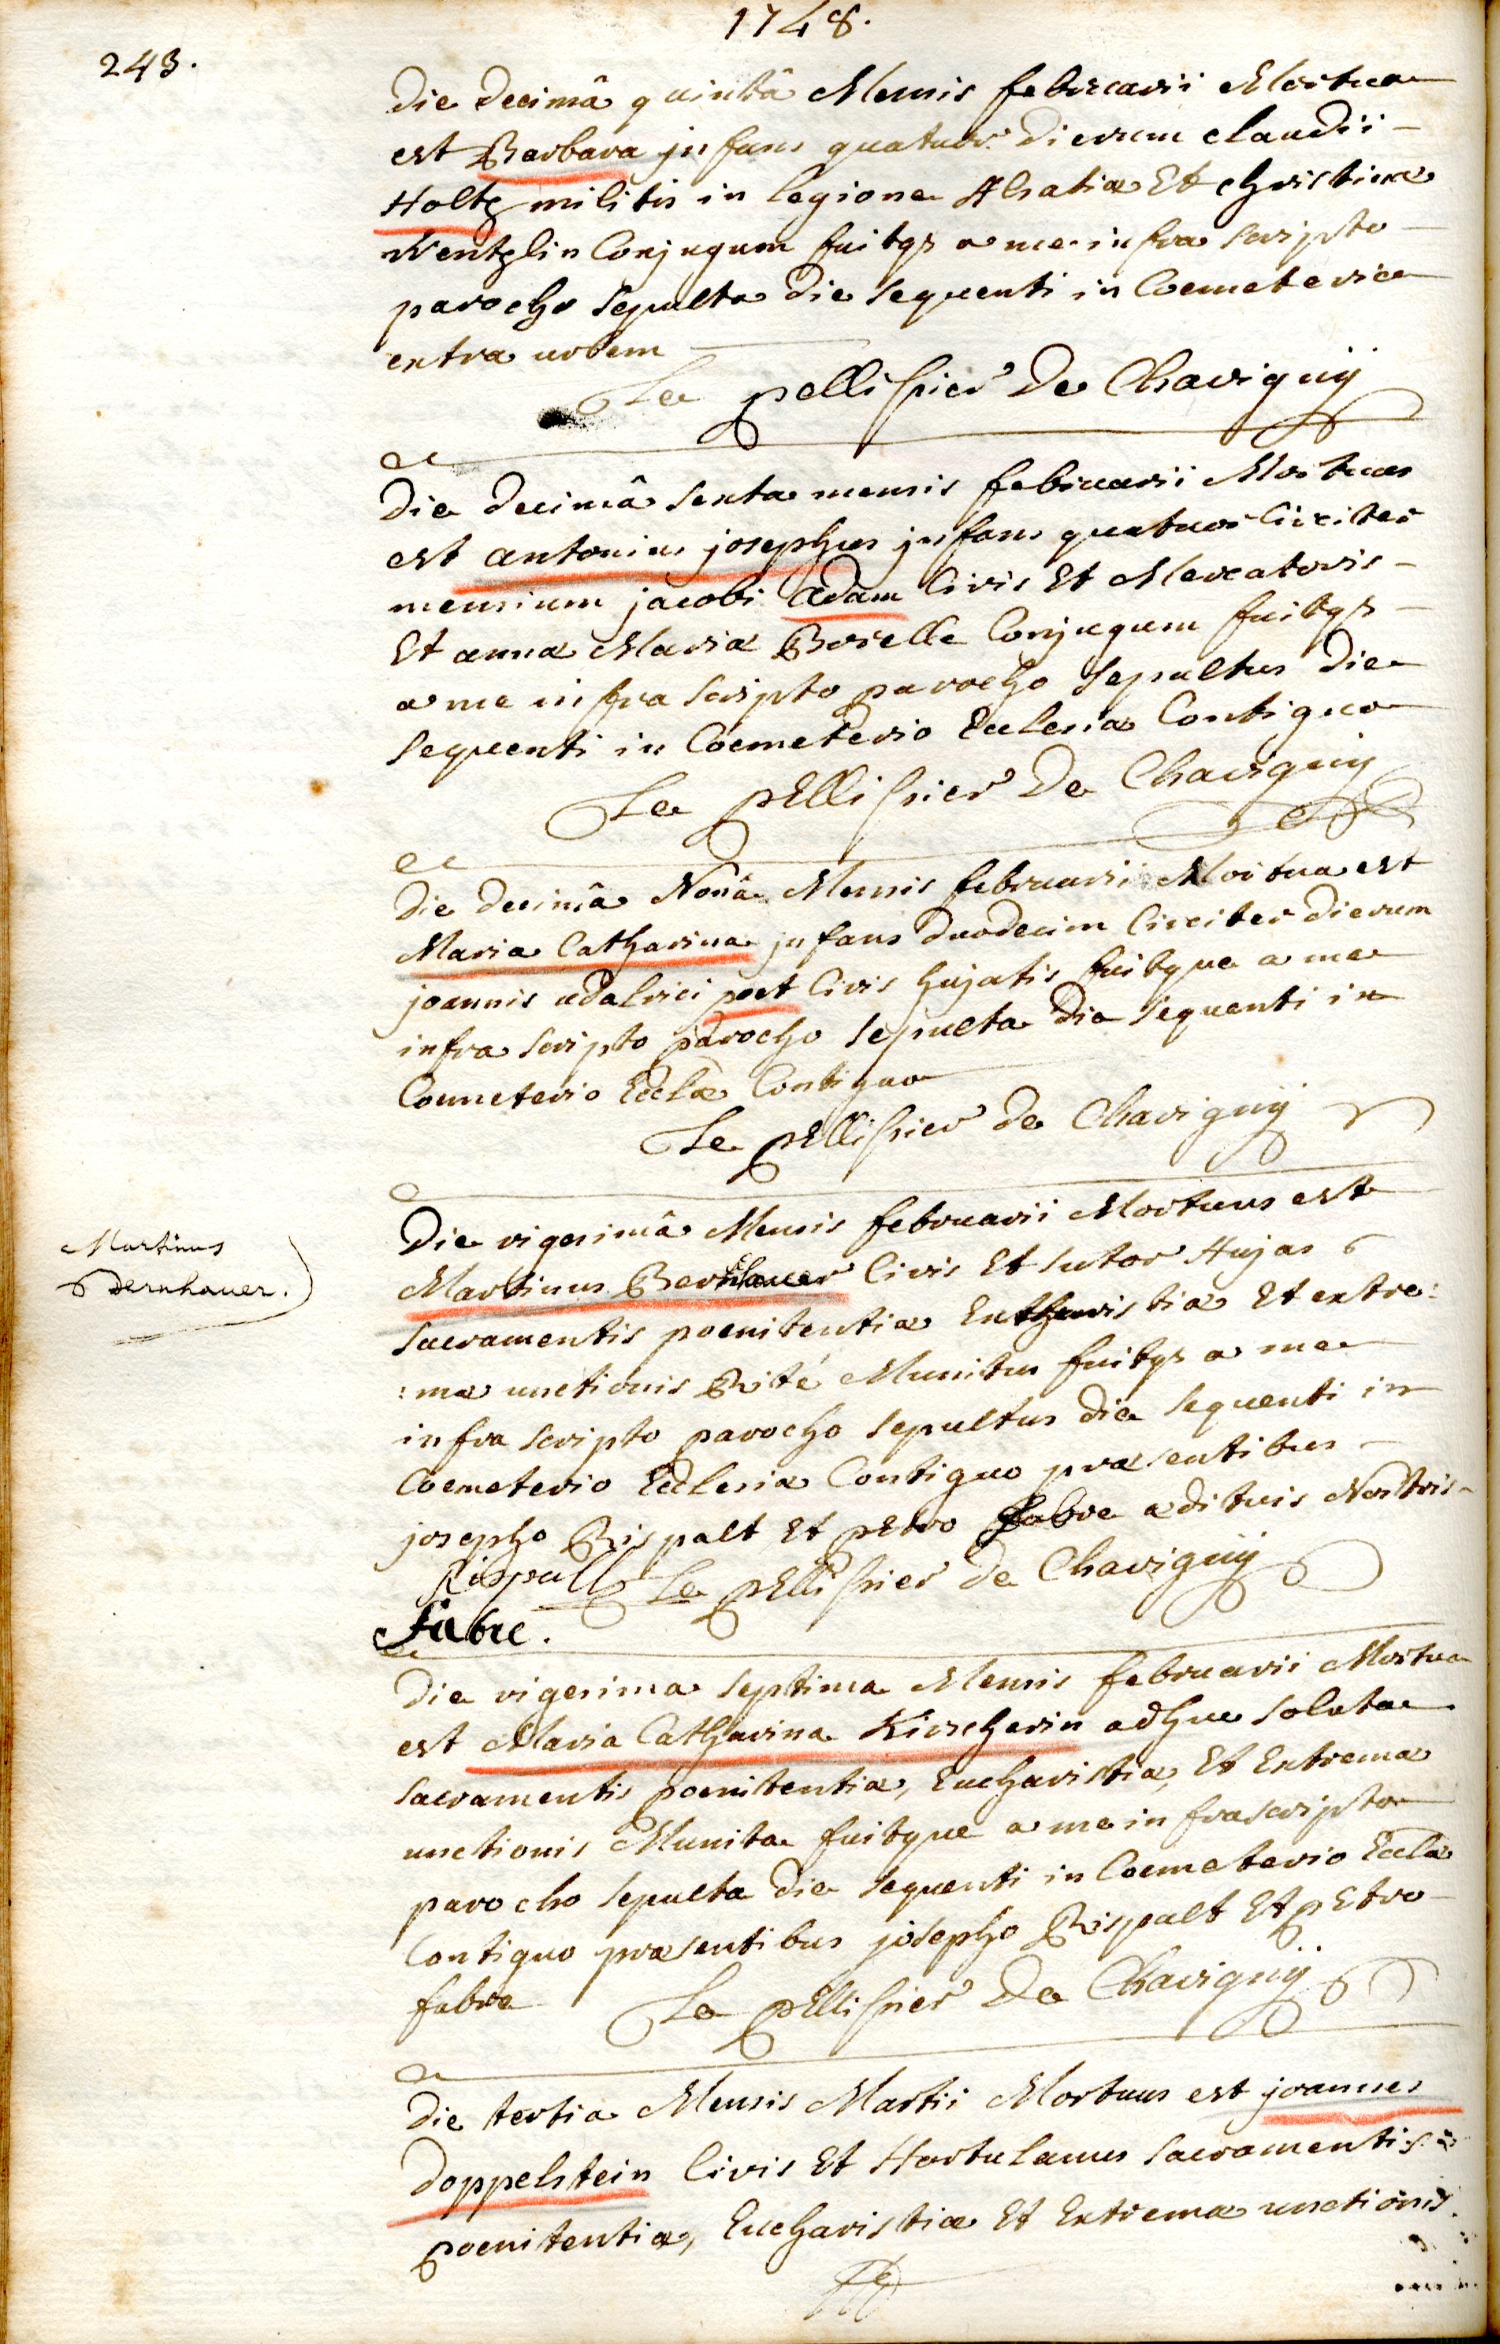 1748.
243.
Die decimâ quintâ Mensis februarii Mortua
est Barbara jnfans quatuor dierum claudii
Holtz militis in legione Alsatiæ Et christinæ
Wentzlin Conjugum fuitqs a me infra scripto
parocho sepulta die sequenti in Coemeterio
extra urbem
Le pellissier De Chavignÿ
Die decimâ sexta mensis februarii Mortuus
est antonius josephus jnfans quatuor Circiter
mensium jacobi adam Civis Et Mercatoris
Et annæ Mariæ Borelle Conjugum fuitqs
a me infra scripto parocho sepultus die
sequenti in Coemeterio Ecclesiæ Contiguo
Le pEllissier De Chavignÿ
Die decimâ Nonâ Mensis februarii Mortua est
Maria Catharina jnfans duodecim Circiter dierum
joannis udalrici post Civis hujatis fuitque a me
infra scripto parocho sepulta die sequenti in
Coemeterio Ecclæ Contiguo
Le pEllissier De Chavignÿ
Die vigesimâ Mensis februarii Mortuus est
Martinus Bernhauer Civis Et sutor Hujas
Martinus
Bernhauer.
sacramentis poenitentiæ Eucharistiæ Et extre:
:mæ unctionis Rité Munitus fuitqs a me
infra scripto parocho sepultus die sequenti in
Coemeterio Ecclesiæ Contiguo præsentibus
josepho Rispalt Et pEtro fabre ædituis Nostris
Rispall Le pEllissier De Chavignÿ
fabre.
Die vigesima septima Mensis februarii Mortua
est Maria Catharina Kirscherin adhuc soluta
sacramentis poenitentiæ, Eucharistiæ, Et Extremæ
unctionis Munita fuitque a me infrascripto
parocho sepulta die sequenti in Coemeterio Ecclæ
Contiguo præsentibus josepho Rispalt Et pEtro
fabre Le pEllissier De Chavignÿ
Die tertia Mensis Martii Mortuus est joannes
doppelstein Civis Et Hortulanus sacramentis
poenitentiæ, Eucharistiæ Et Extremæ unctionis